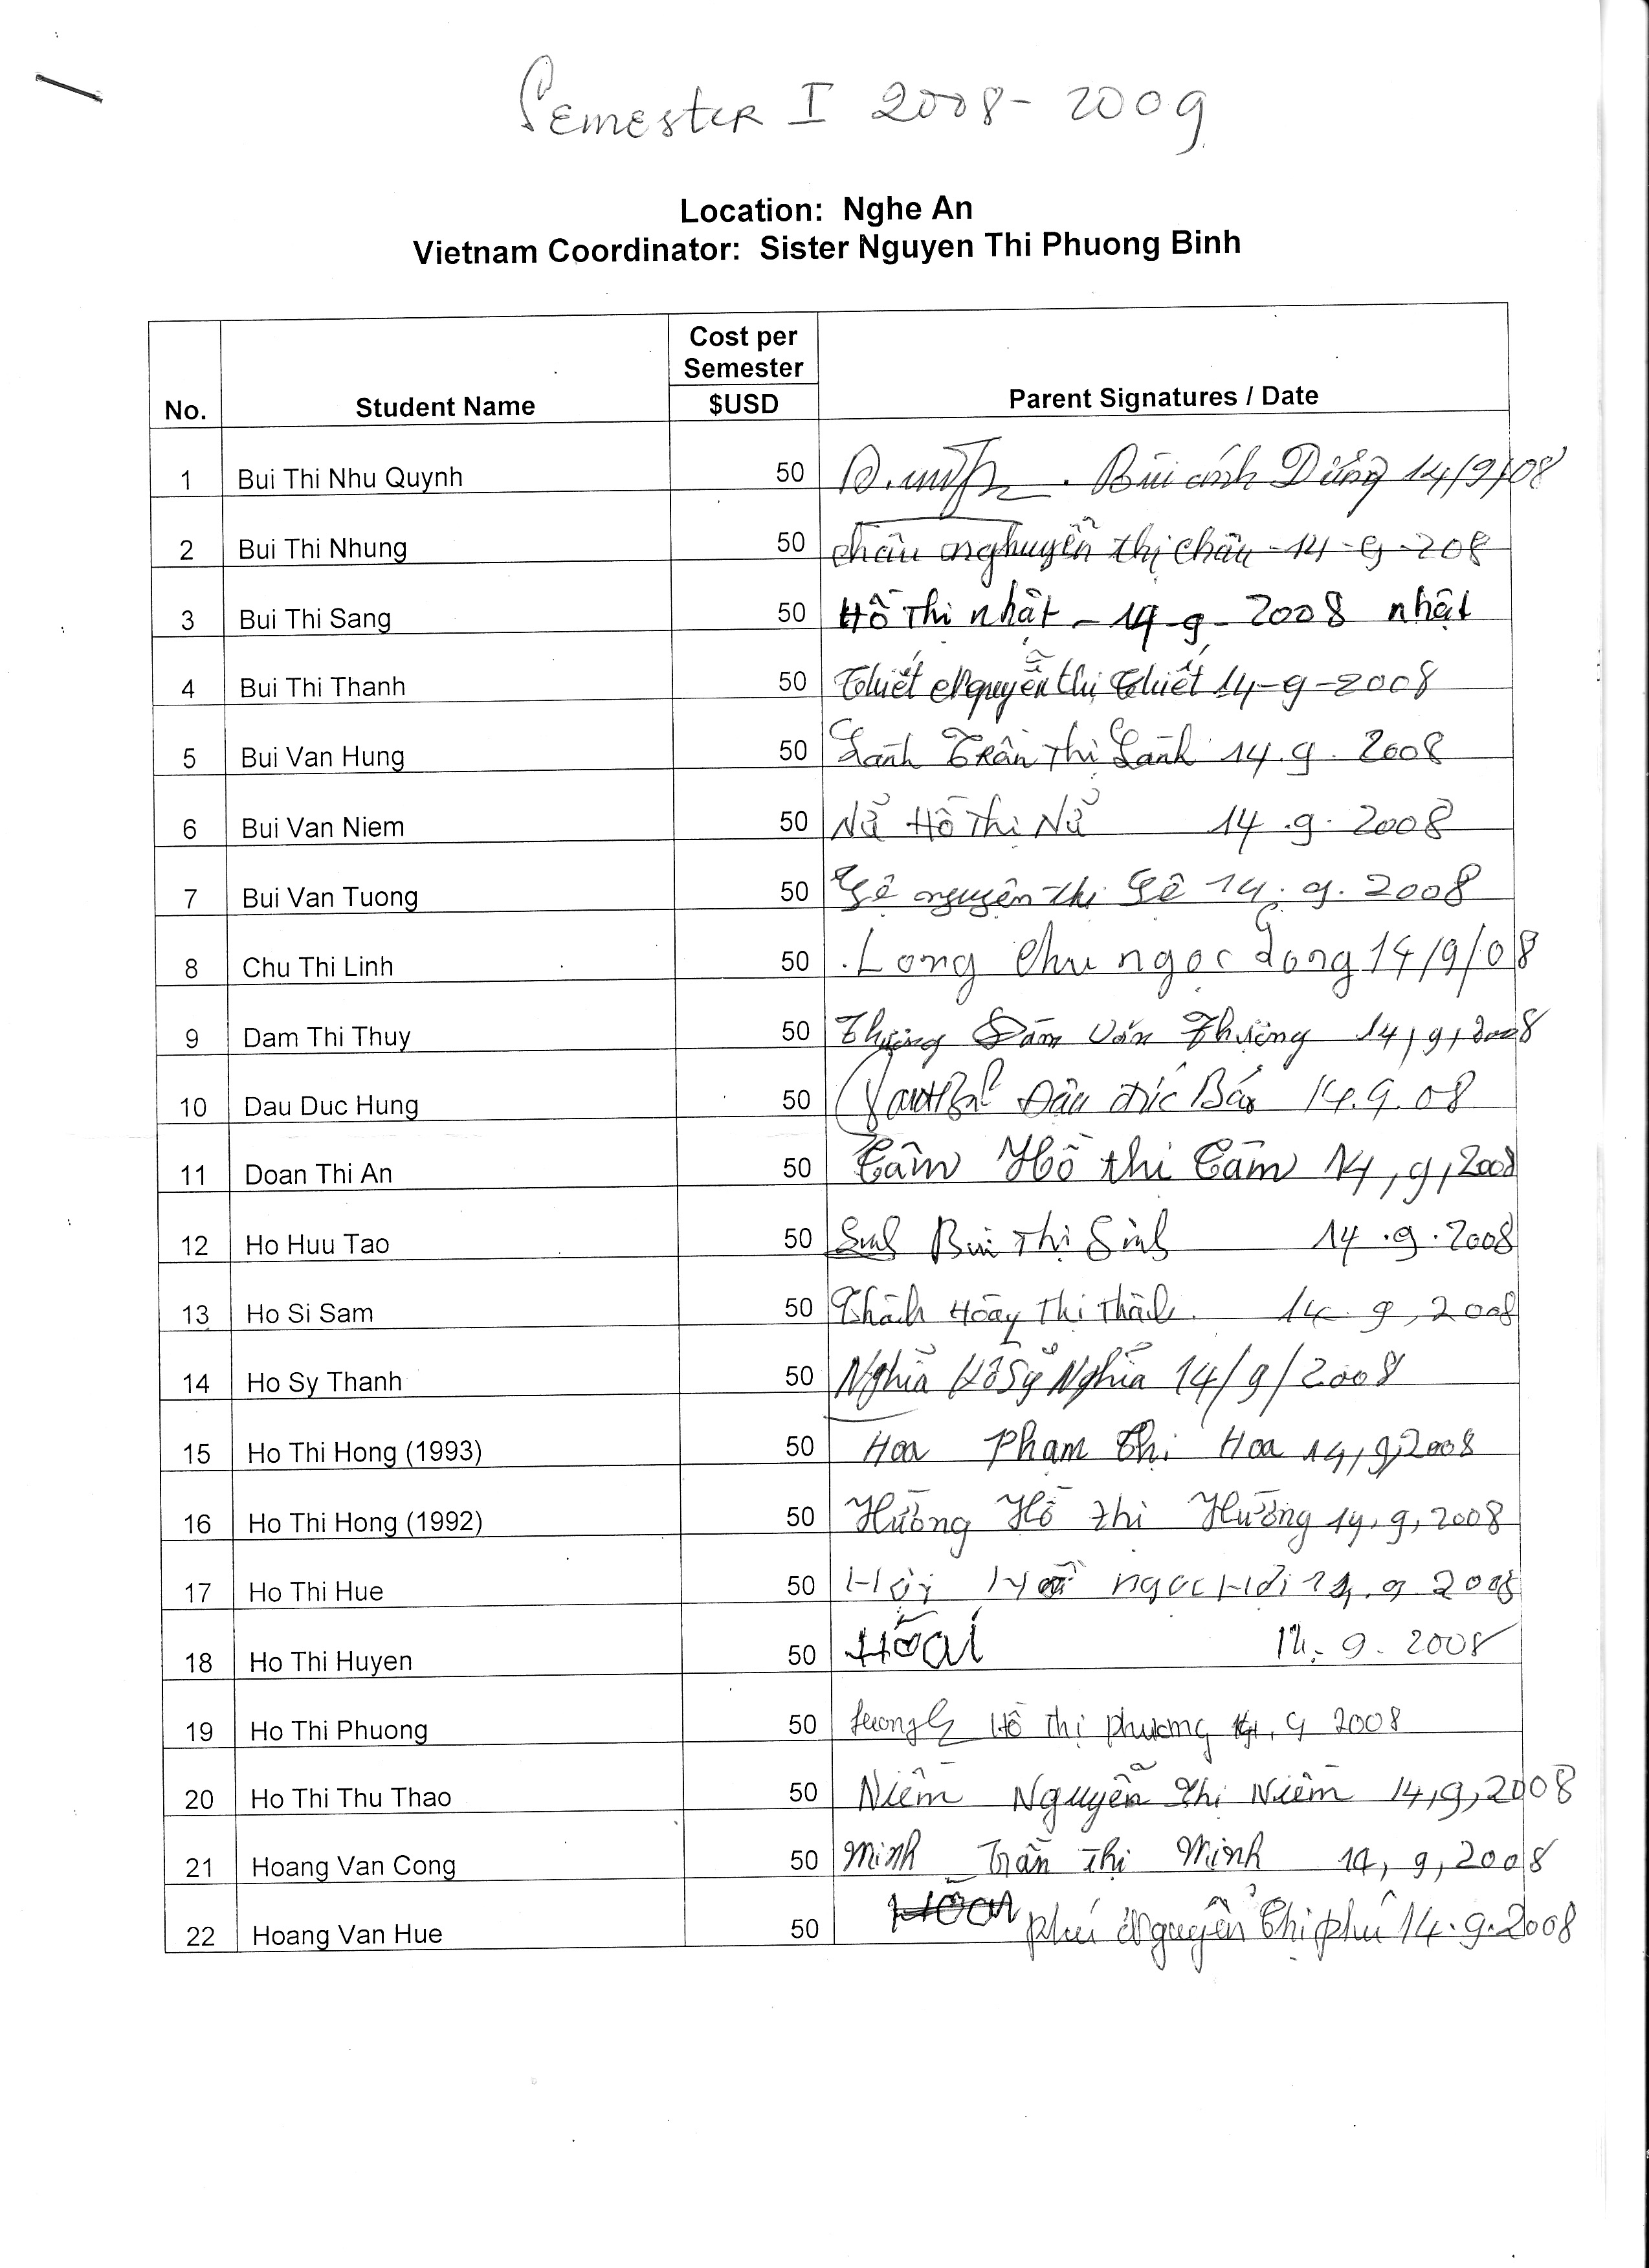 Semester I 2008-2009
Location: Nghe An
Vietnam Coordinator: Sister Nguyen Thi Phuong Binh
No. Student Name Cost per Semester $USD Parent Signatures / Date
1 Bui Thi Nhu Quynh 50 Bùi cảnh Dũng 14/9/08
2 Bui Thi Nhung 50 châu nghuyễn thị châu - 14 - 9 - 208
3 Bui Thi Sang 50 Hồ Thị nhật - 14 - 9 - 2008 nhật
4 Bui Thi Thanh 50 Thiết Nguyễn thị Thiết 14-9-2008
5 Bui Van Hung 50 Lành Trần Thị Lành 14.9.2008
6 Bui Van Niem 50 Nữ Hồ Thị Nữ 14.9.2008
7 Bui Van Tuong 50 nguyễn thị 14.9.2008
8 Chu Thi Linh 50 Long Chu ngọc Long 14/9/08
9 Dam Thi Thuy 50 Thường Đàm Văn Thường 14,9,2008
10 Dau Duc Hung 50 Đậu đức Báu 14.9.08
11 Doan Thi An 50 Cầm Hồ thị Cầm 14,9,2008
12 Ho Huu Tao 50 Sinh Bùi Thị Sinh 14.9.2008
13 Ho Si Sam 50 Thị 14.9,2008
14 Ho Sy Thanh 50 Nghĩa Hồ Sỹ Nghĩa 14/9/2008
15 Ho Thi Hong (1993) 50 Hoa Phạm Thị Hoa 14,9,2008
16 Ho Thi Hong (1992) 50 Hường Hồ thị Hường 14.9,2008
17 Ho Thi Hue 50 Hợi ngọc Hợi 14.9 2008
18 Ho Thi Huyen 50 14.9.2008
19 Ho Thi Phuong 50 Hồ Thị phương 14.9 2008
20 Ho Thi Thu Thao 50 Niêm Nguyễn Thị Niêm 14,9,2008
21 Hoang Van Cong 50 Minh Trần Thị Minh 14,9,2008
22 Hoang Van Hue 50 phú Nguyễn Thị phú 14.9.2008